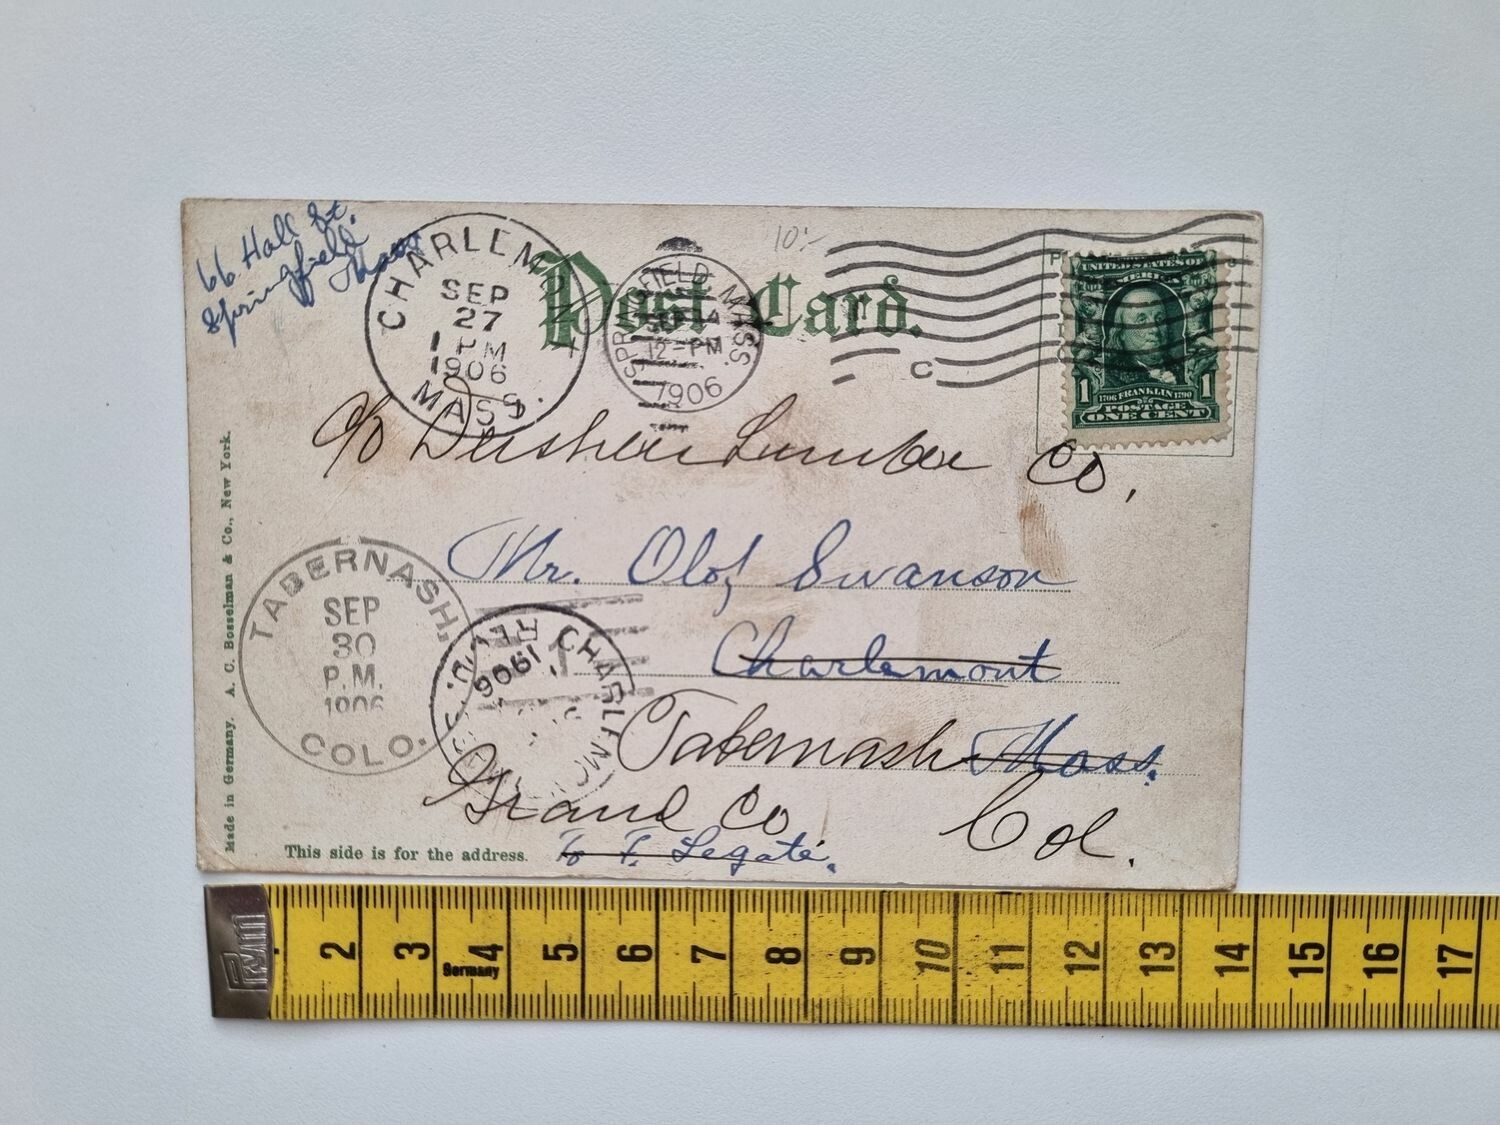 66 Hall St.
Springfield
Mass
CHARLEMONT
SEP
27
1 PM
1906
MASS.
Post Card.
SPRINGFIELD, MASS.
12-PM
1906
10.-
C
UNITED STATES OF
AMERICA
1 1
1706 FRANKLIN 1790
POSTAGE
ONE CENT
c/o Lumber Co,
Mr. Olof Swanson
Charlemont
Tabernash Mass.
Grand Co. Col.
To F. Legate.
TABERNASH,
SEP
30
P.M.
1906
COLO.
REC'D.
CHARLEMONT
1906
Made in Germany. A. C. Bosselman & Co., New York.
This side is for the address.
Prym
2 3 4 5 6 7 8 9 10 11 12 13 14 15 16 17
Germany